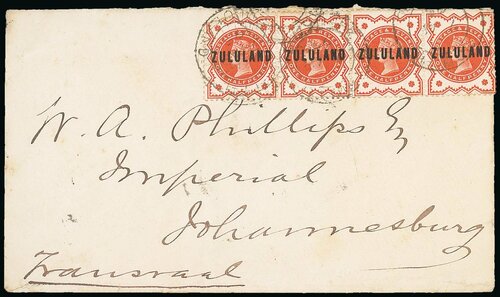 ZULULAND ZULULAND ZULULAND ZULULAND
W. A. Phillips Esq
Imperial
Johannesburg
Transvaal